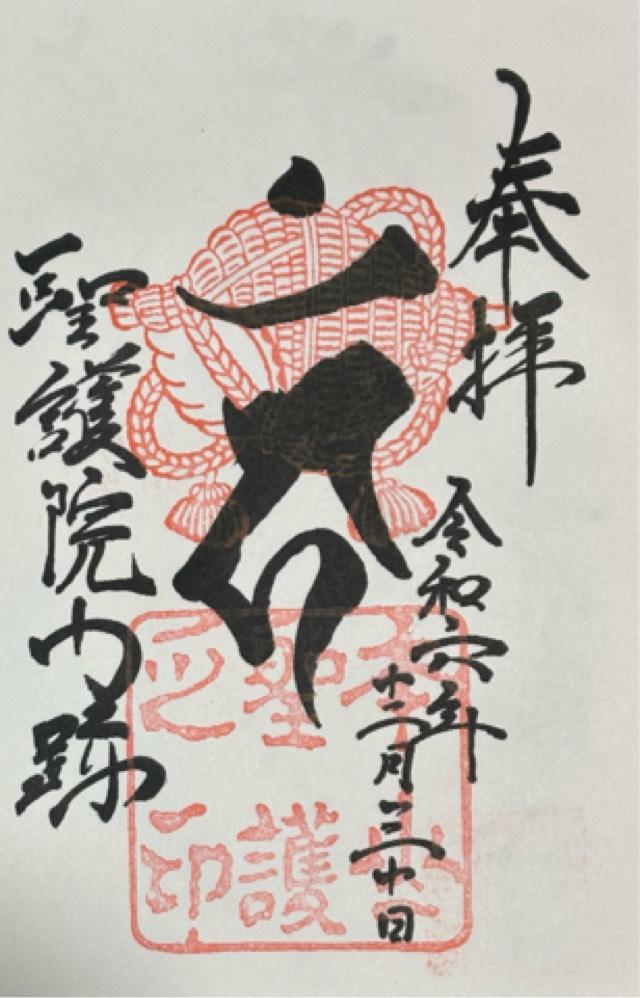 奉拝
令和六年
十二月三十日
聖護院門跡
聖護
之印